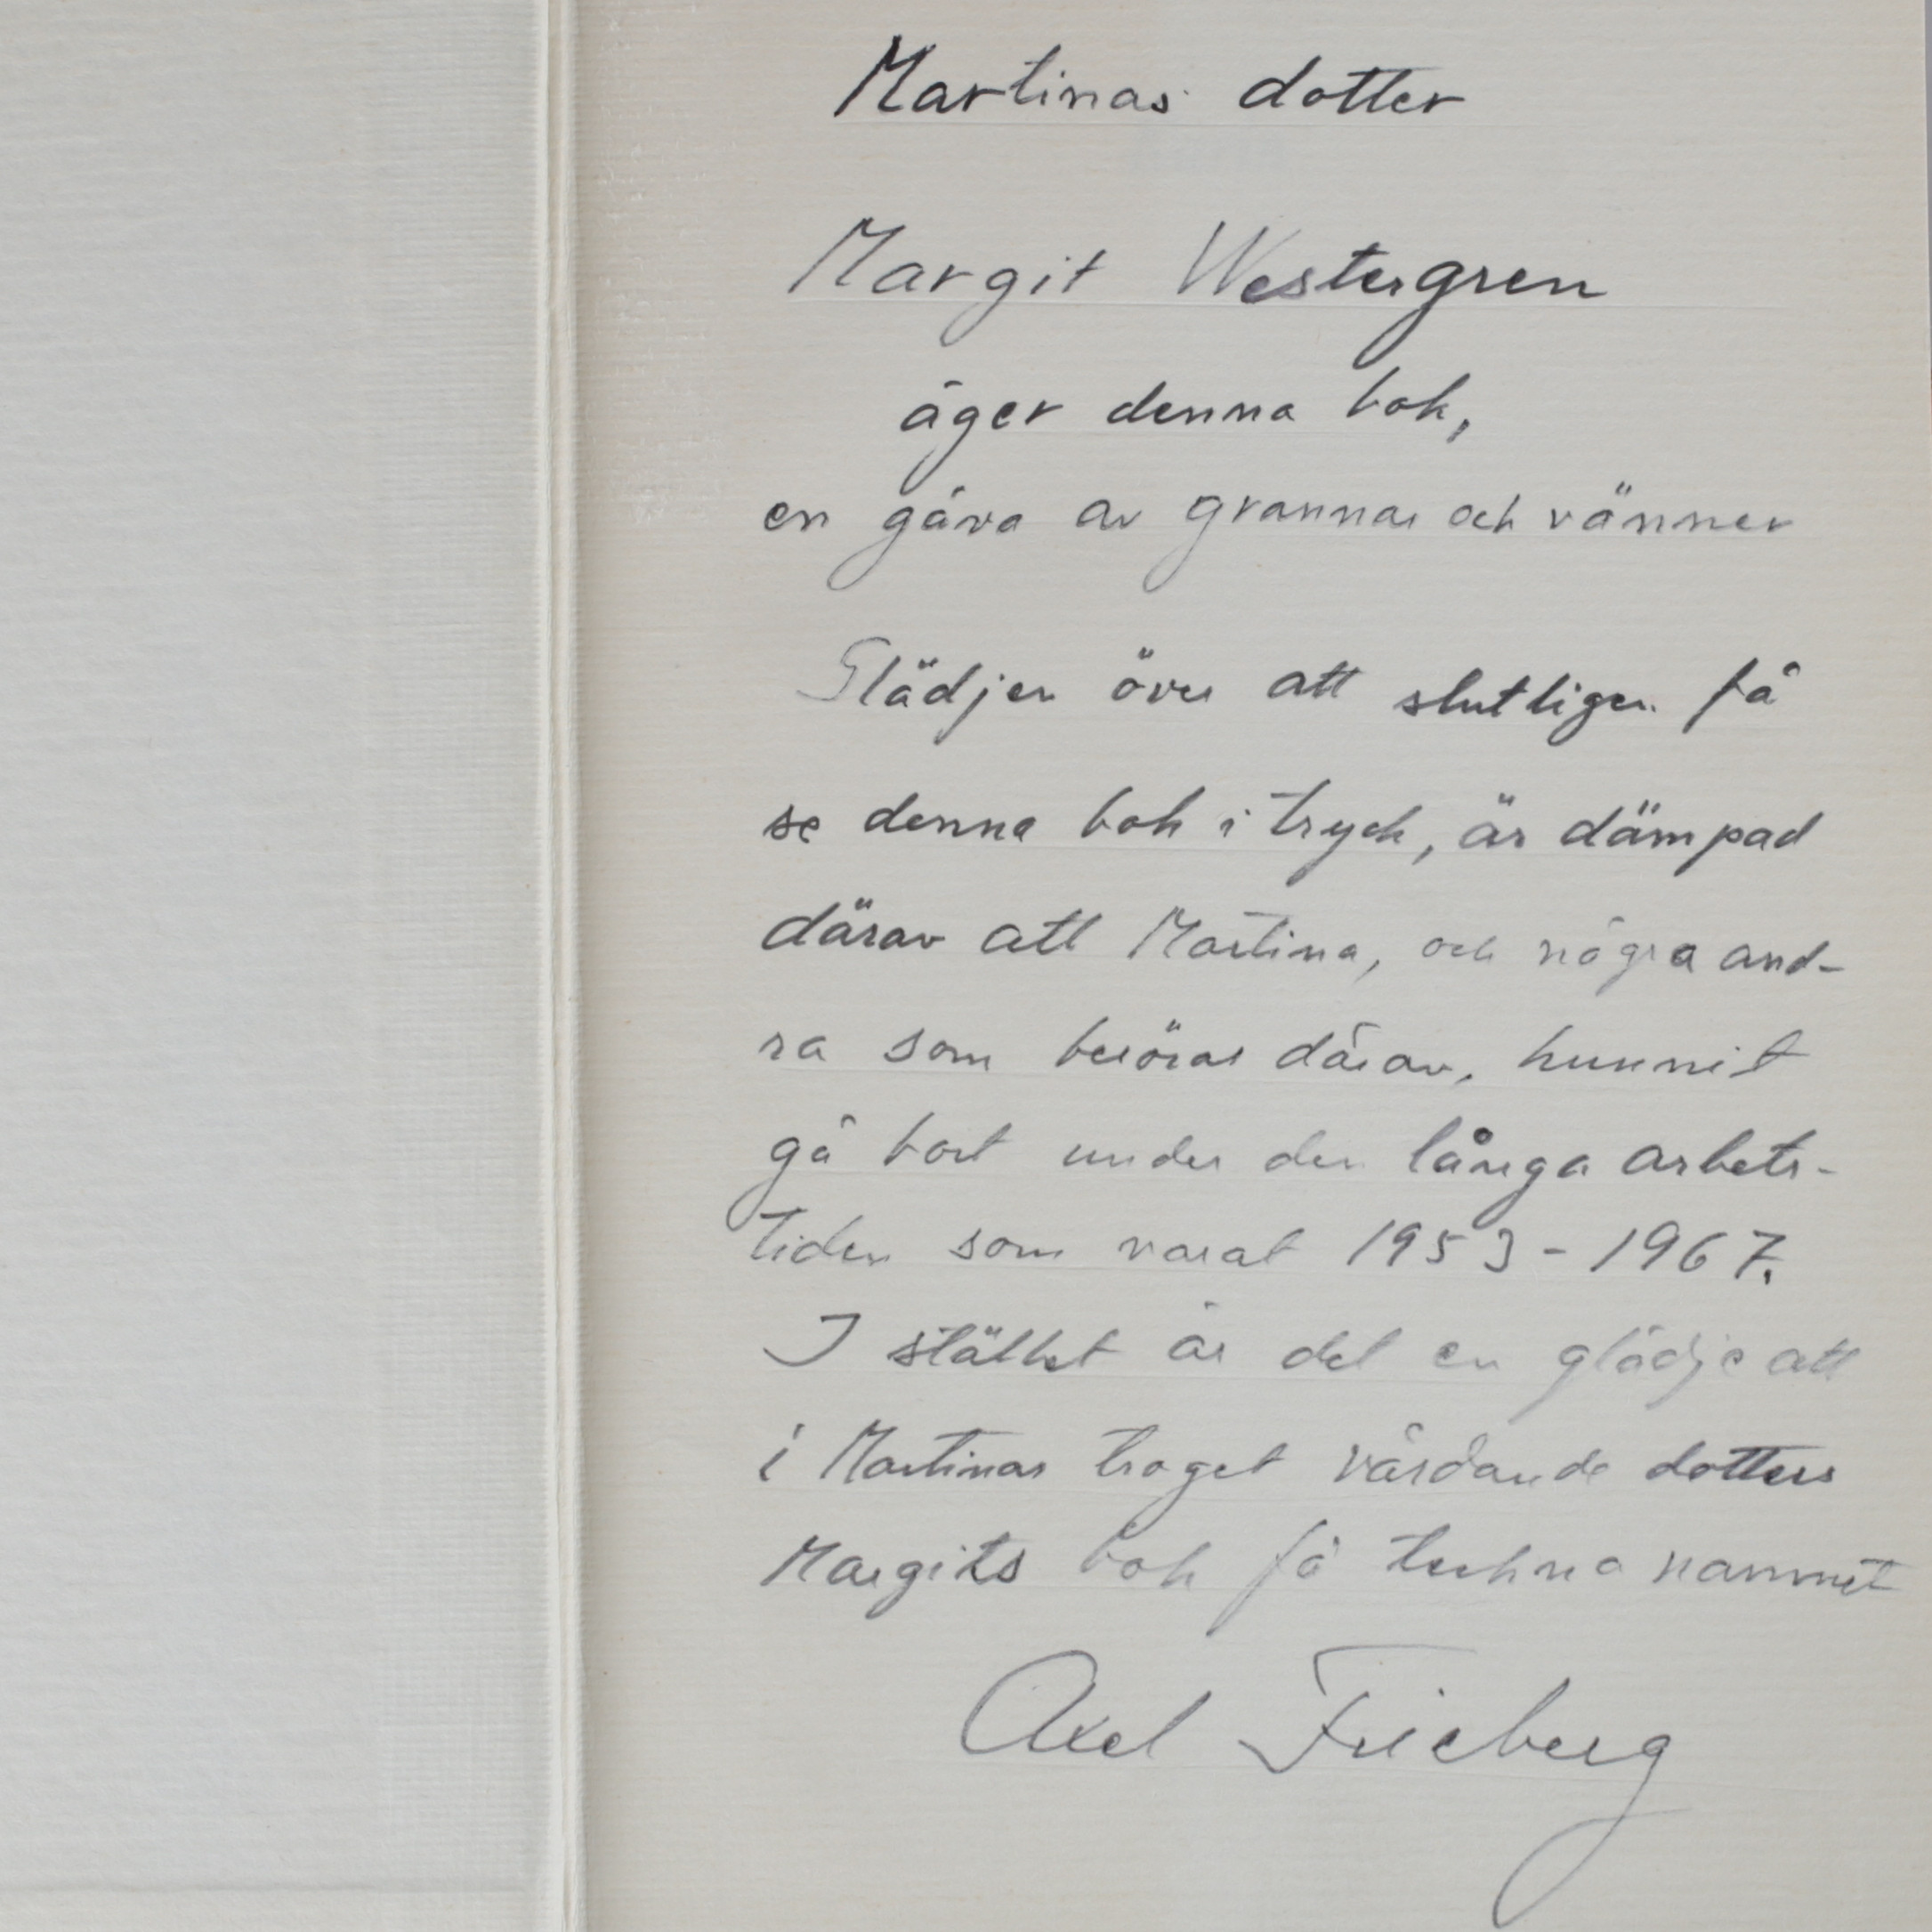 Martinas dotter
Margit Westergren
äger denna bok,
en gåva av grannar och vänner
Glädjen över att slutligen få
se denna bok i tryck, är dämpad
därav att Martina, och några and-
ra som beröras därav, hunnit
gå bort under den långa arbets-
tiden som varat 1953-1967.
I stället är det en glädje att
i Martinas troget vårdande dotters
Margits bok få teckna namnet
Axel Frieberg